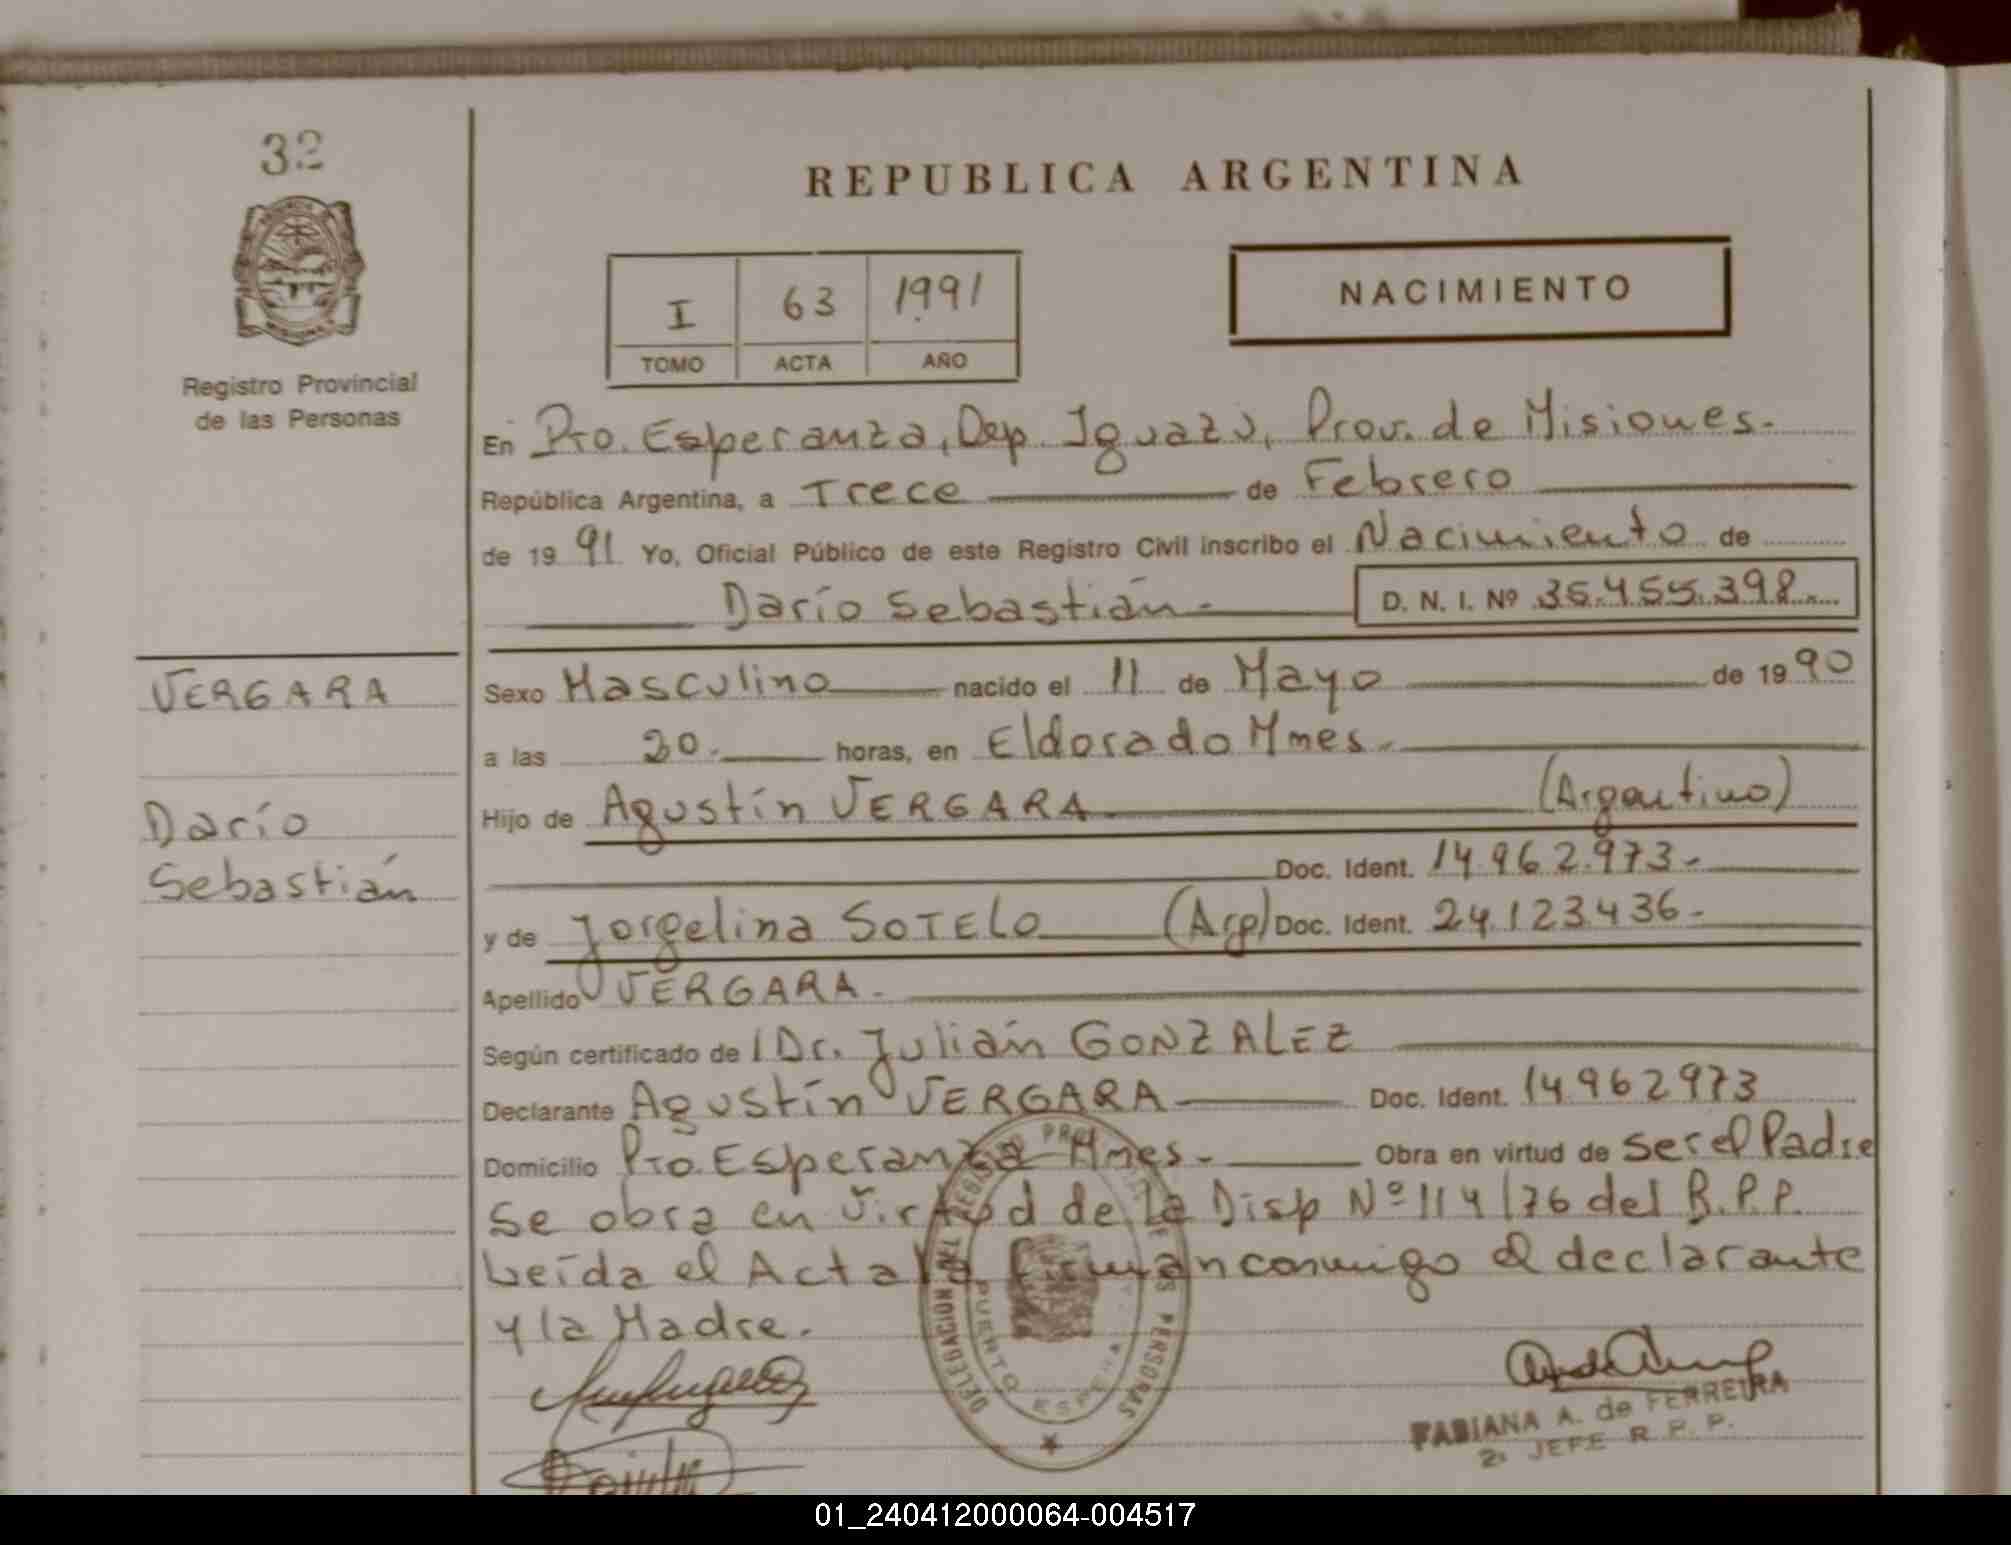 32
REPUBLICA ARGENTINA
I 63 1991
TOMO ACTA AÑO
NACIMIENTO
Registro Provincial
de las Personas
En Pto. Esperanza, Dep. Iguazú, Prov. de Misiones.
República Argentina, a Trece de Febrero
de 19 91 Yo, Oficial Público de este Registro Civil inscribo el Nacimiento de
Darío Sebastián D. N. I. Nº 35.455.398
VERGARA
Darío
Sebastián
Sexo Masculino nacido el 11 de Mayo de 19 90
a las 20. horas, en Eldorado Mnes.
Hijo de Agustín VERGARA (Argentino)
Doc. Ident. 14.962.973-
y de Jorgelina SOTELO (Arg) Doc. Ident. 24.123.436-
Apellido VERGARA.
Según certificado de Dr. Julián GONZALEZ
Declarante Agustín VERGARA Doc. Ident. 14.962973
Domicilio Pto. Esperanza Mnes. Obra en virtud de ser el Padre
Se obra en Virtud de la Disp Nº 114/76 del R.P.P.
Leída el Acta la firman conmigo el declarante
y la Madre.
DELEGACION DEL REGISTRO PROVINCIAL DE LAS PERSONAS
PUERTO ESPERANZA
FABIANA A. de FERREIRA
2ª JEFE R. P. P.
01_240412000064-004517